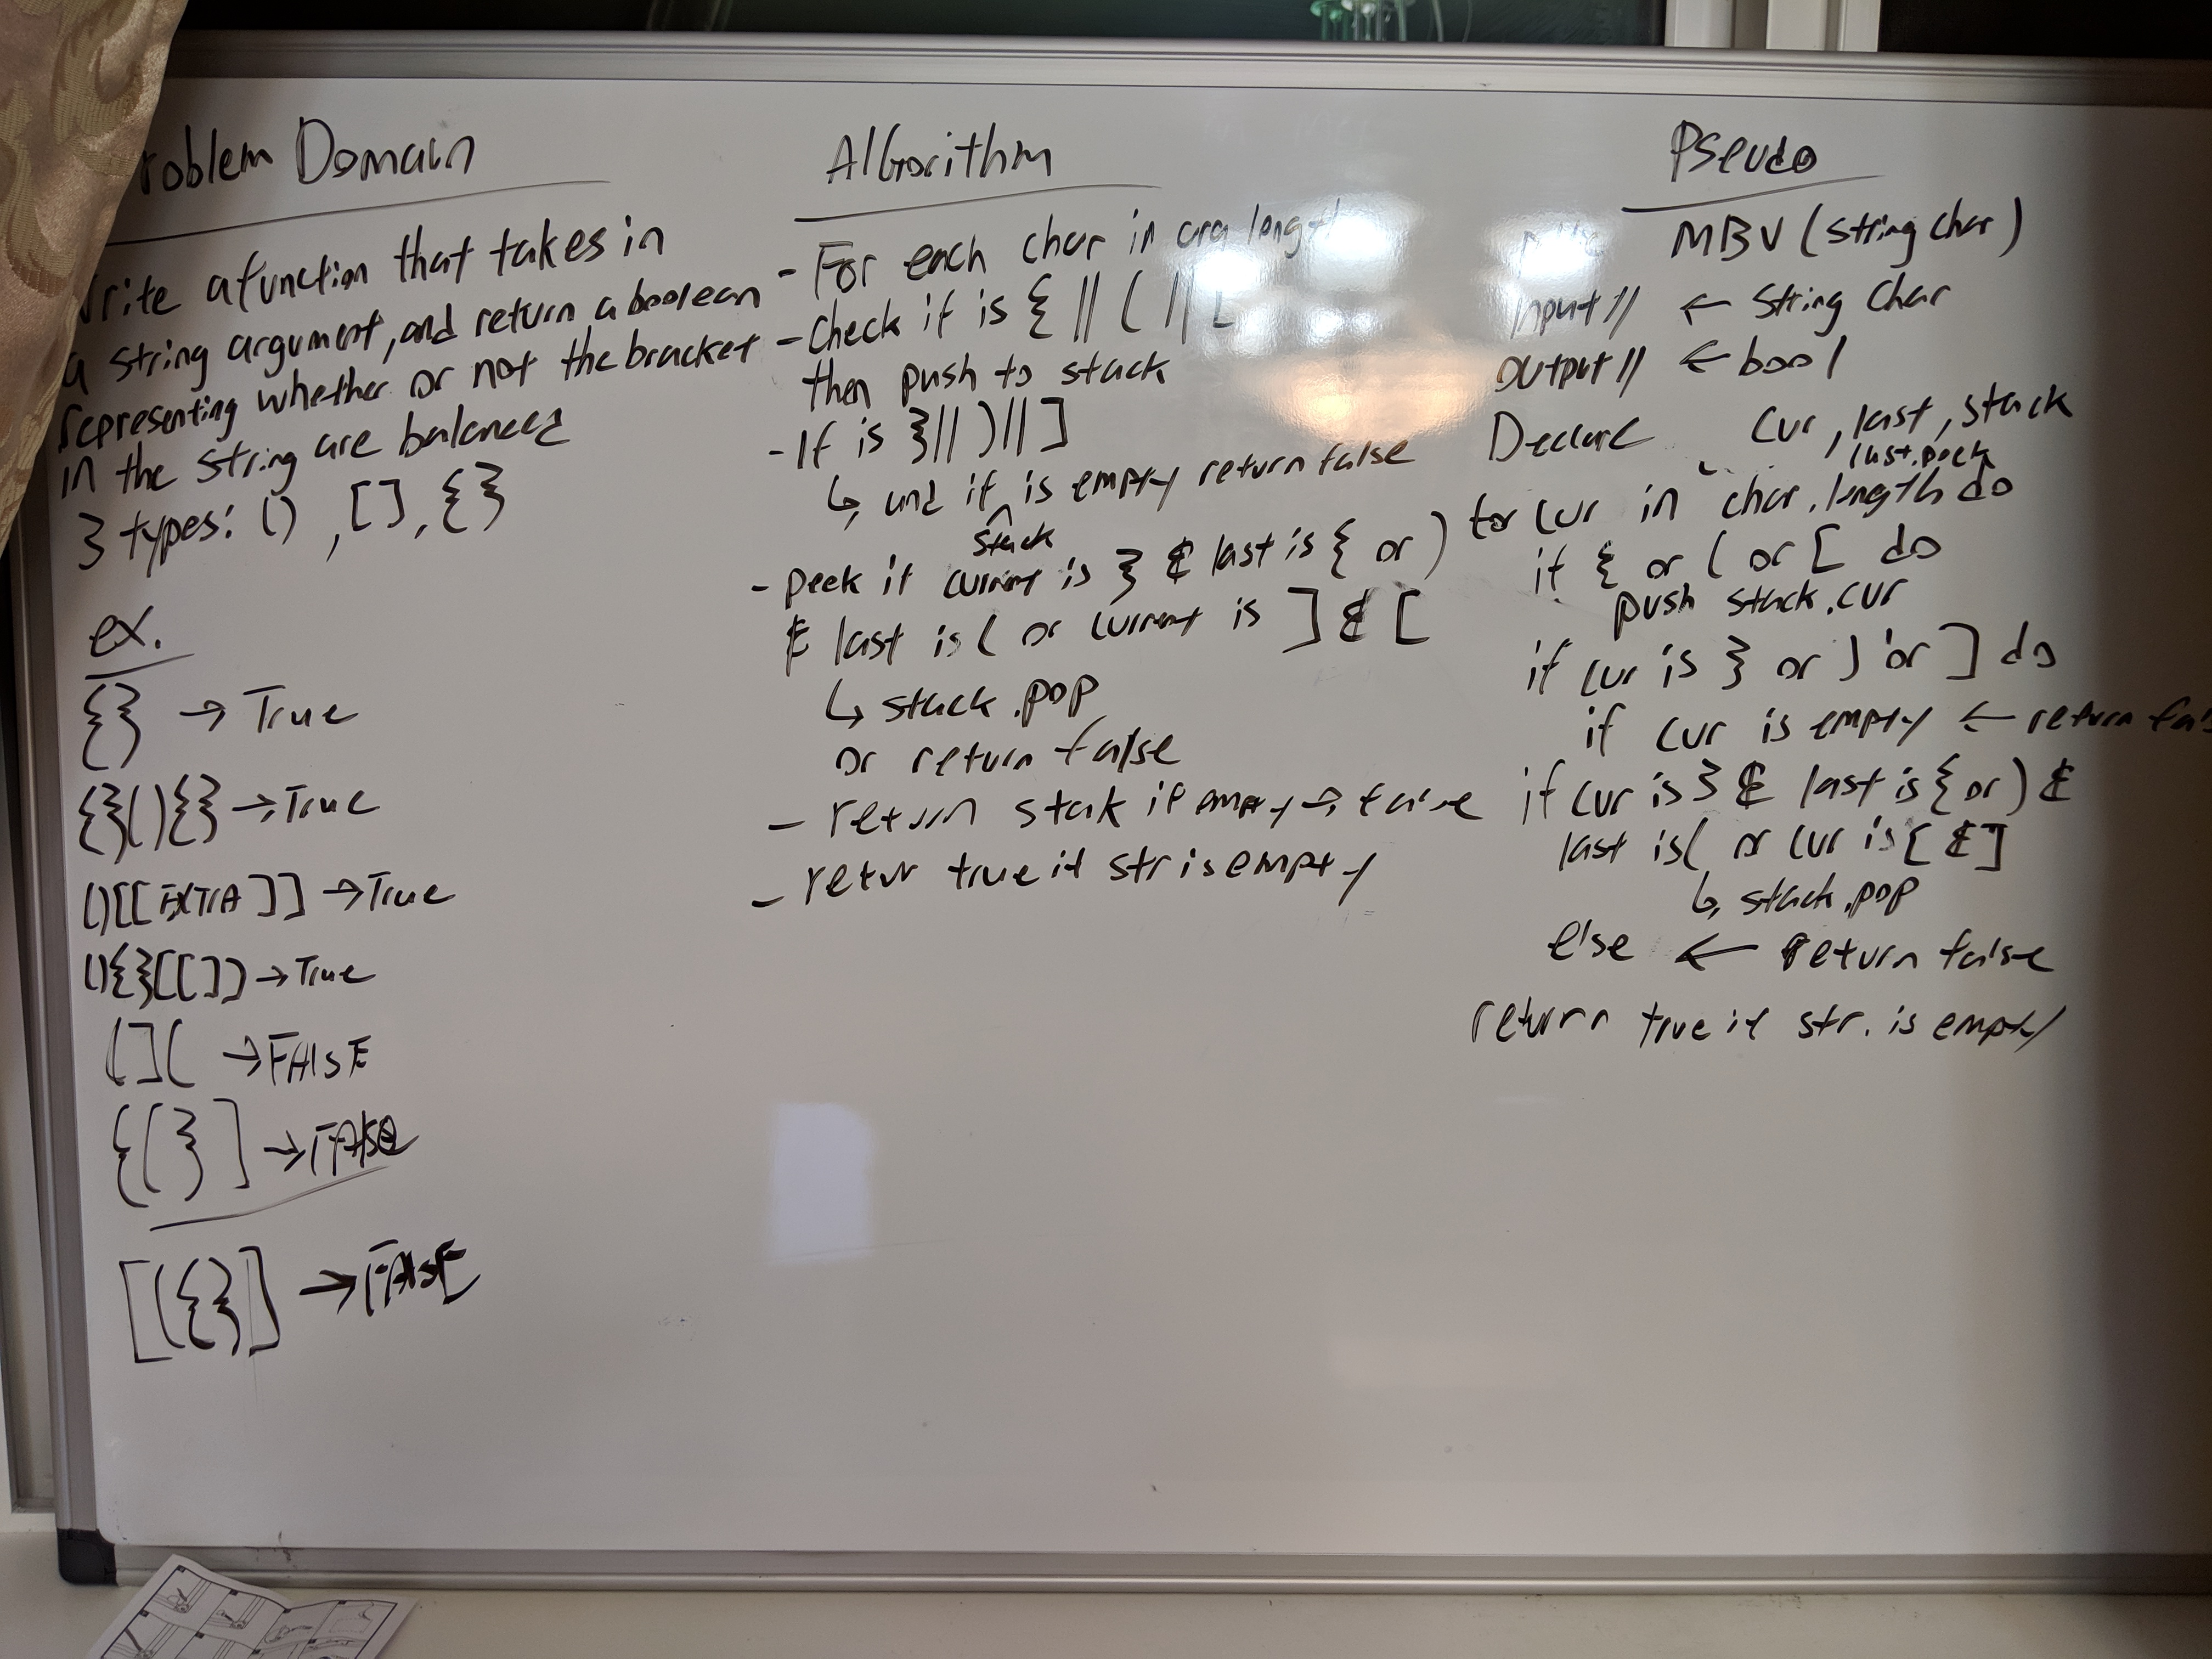 roblem Domain
rite a function that takes in
a string argument, and return a boolean
representing whether or not the bracket
in the string are balanced
3 types: () , [] , {}
ex.
{} → True
{}(){} → True
()[[EXTRA]] → True
(){}[[]] → True
[]( → FAlsE
{(} ] → FAlse
[({}] → FAlsE
AlGorithm
- For each char in arg length
- Check if is { || ( || [
then push to stack
- If is } || ) || ]
↳ and if stack is empty return false
- peek if current is } & last is { or )
& last is ( or current is ] & [
↳ stack.pop
or return false
- return stak if empty → false
- retur true if str is empty
PSeudo
MBV (string char)
Input // ← String Char
output // ← bool
Declare Cur, last, stack
last.peek
for cur in char.length do
if { or ( or [ do
push stack.cur
if cur is } or ) or ] do
if cur is empty ← return fals
if cur is } & last is { or ) &
last is ( or cur is [ & ]
↳ stack.pop
else ← return false
return true if str. is empty